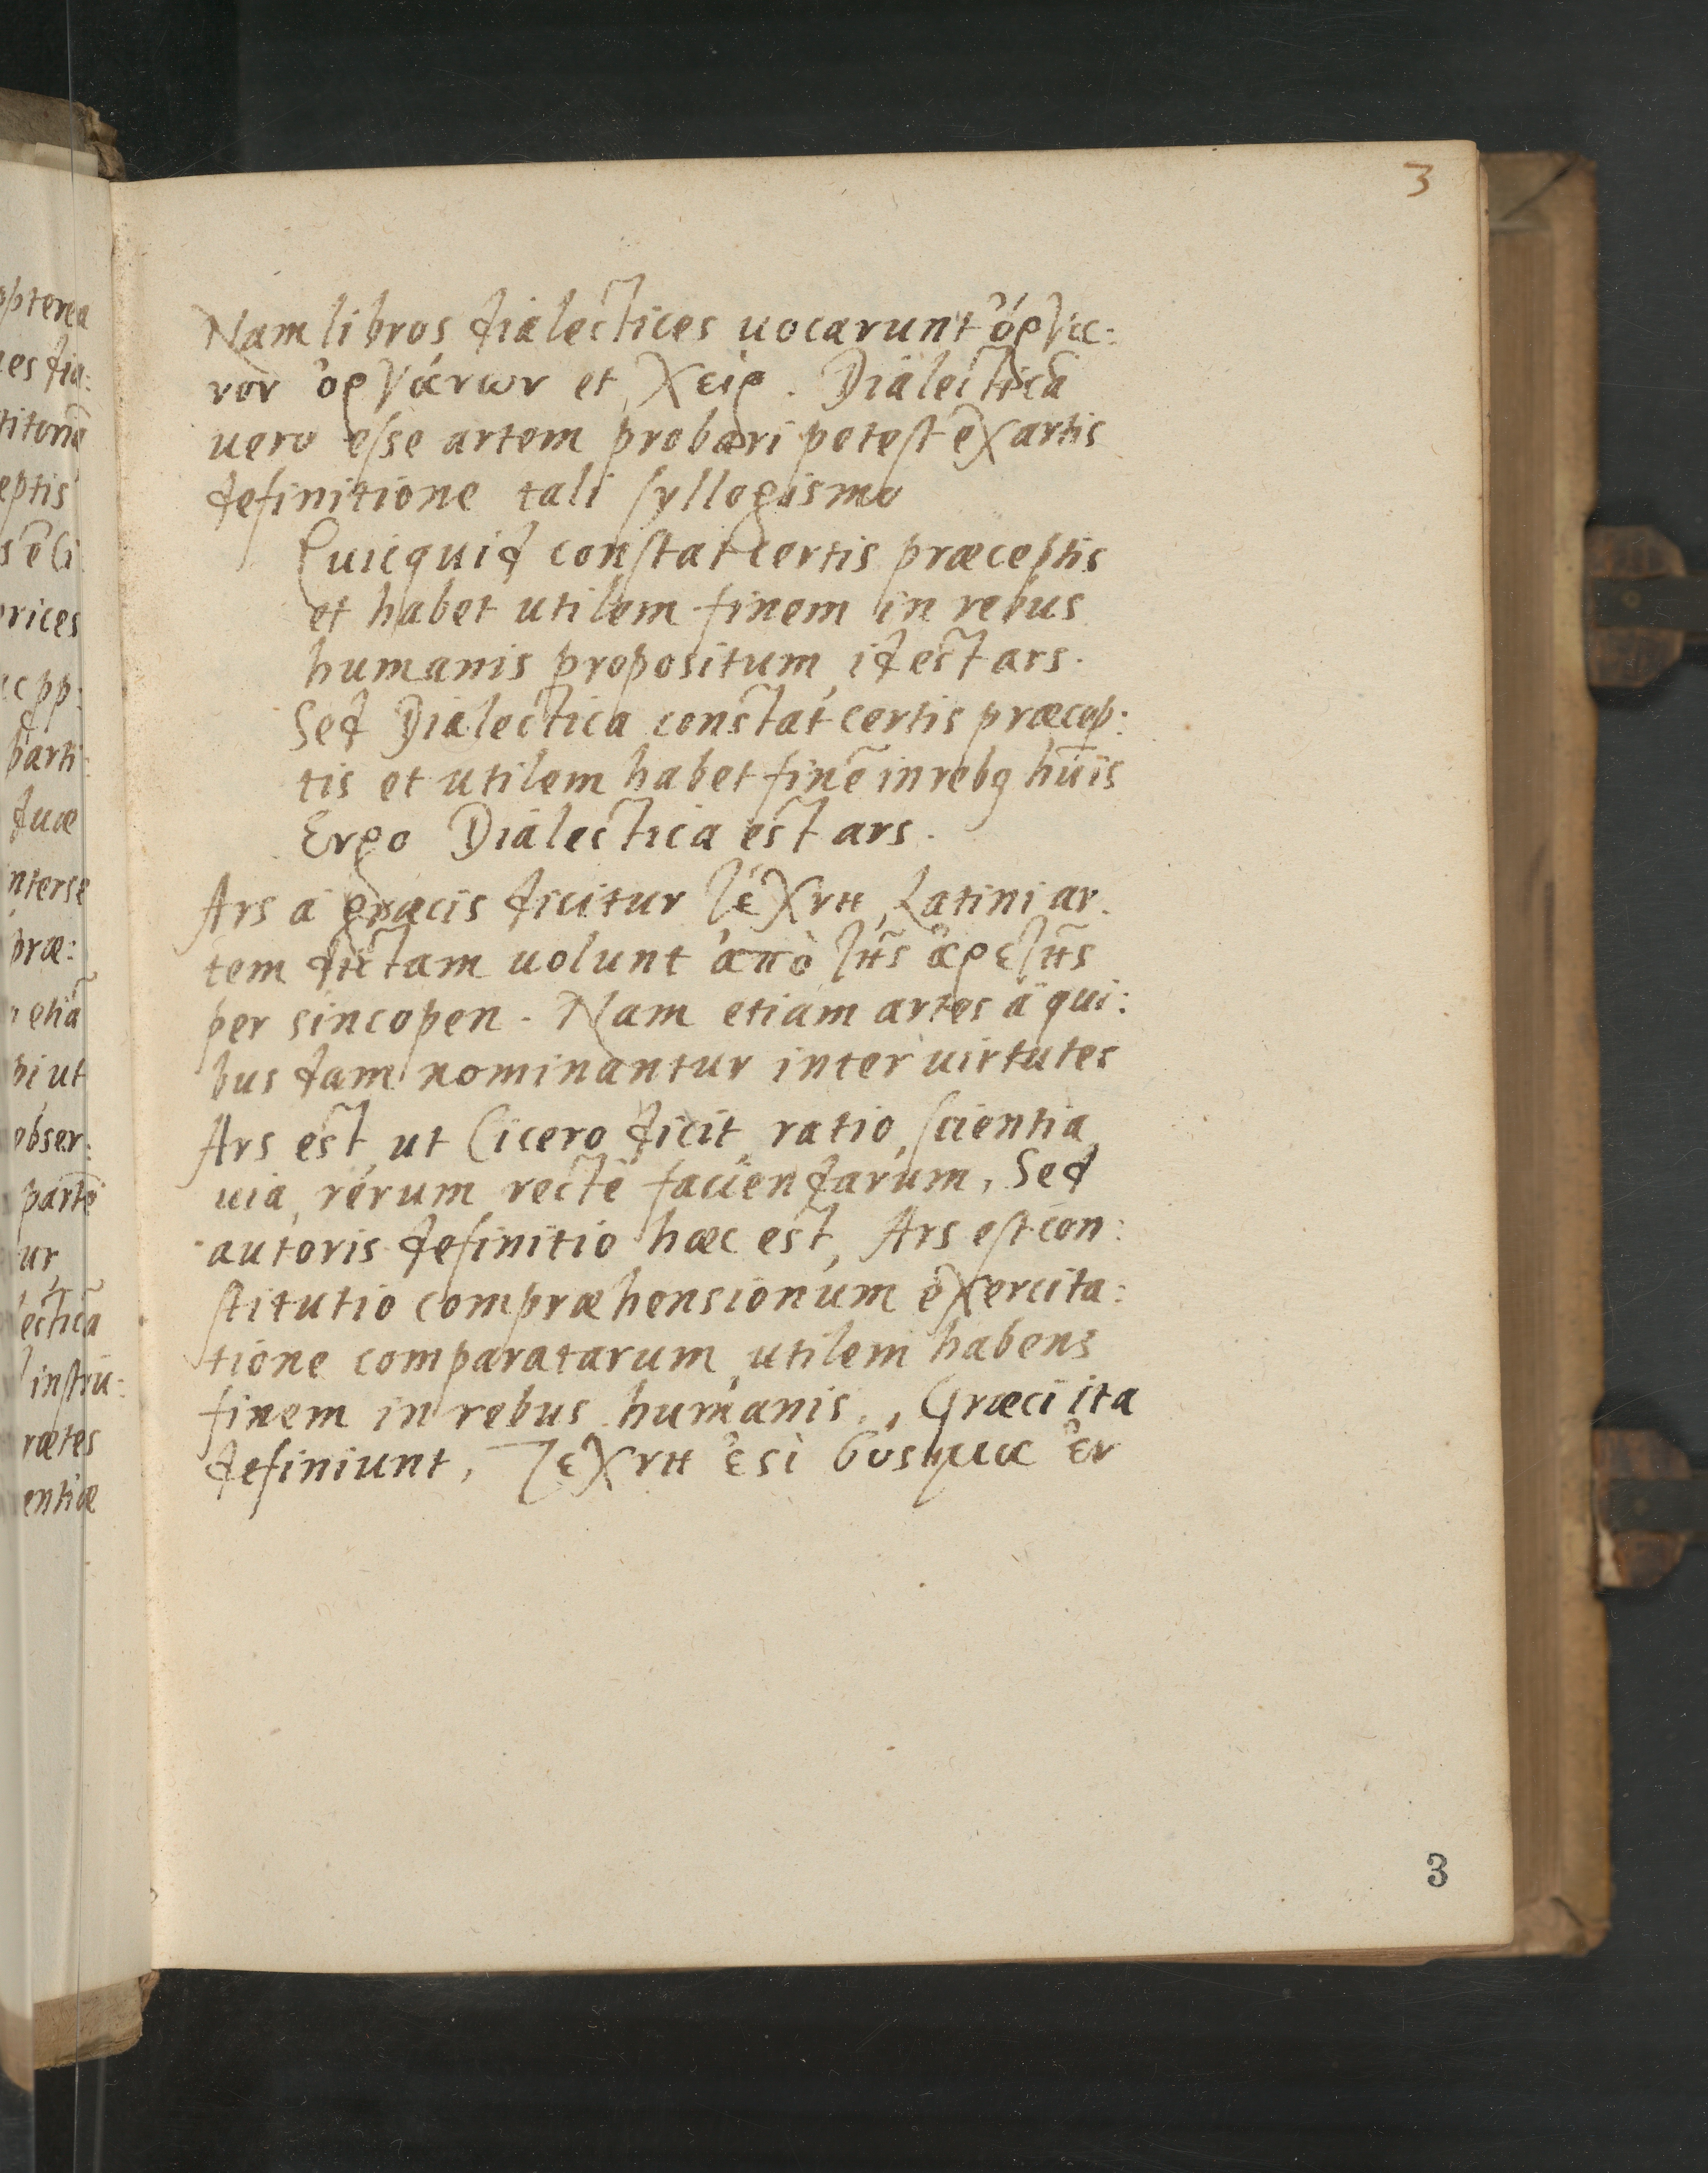 3
Nam libros dialectices uocarunt ὄργα:
νον ὀργάνων et χείρ. Dialecticā
uero esse artem probari potest ex artis
definitione tali syllogismo
Quicquid constat certis præceptis
et habet utilem finem in rebus
humanis propositum, id est ars.
Sed Dialectica constat certis præcep:
tis et utilem habet finē in rebꝰ hūis
Ergo Dialectica est ars.
Ars a græcis dicitur τέχνη, Latini ar.
tem dictam uolunt ἀπὸ τῆς ἀρετῆς
per sincopen. Nam etiam artes a qui:
bus dam nominantur inter uirtutes
Ars est, ut Cicero dicit, ratio, scientia,
uia, rerum recte faciendarum, Sed
autoris definitio hæc est, Ars est con:
stitutio compræhensionum exercita:
tione comparatarum, utilem habens
finem in rebus humanis., Græci ita
definiunt, Τεχνη ἐςὶ σύςημα ἐν
3